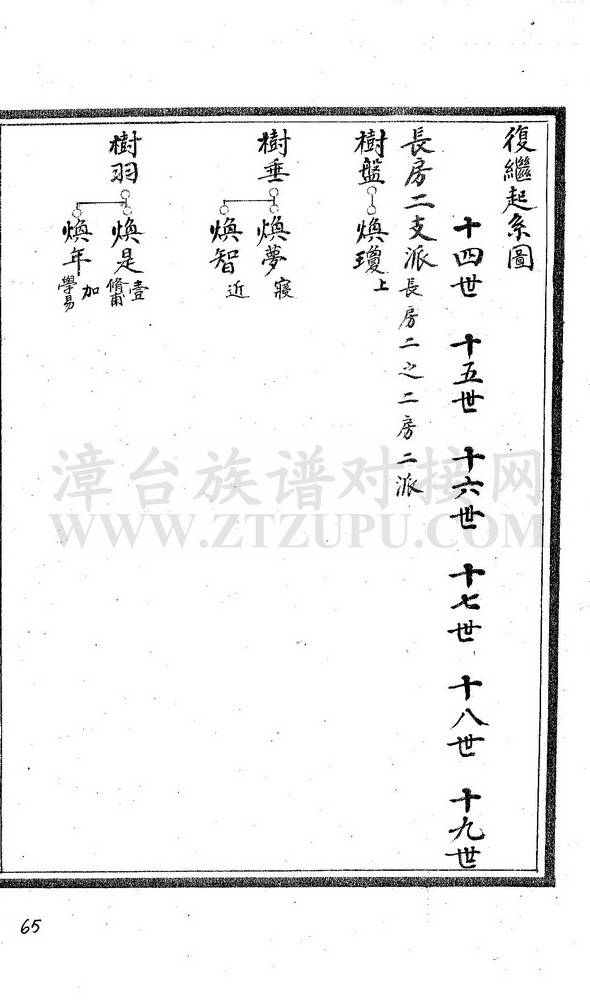 復繼起系圖
十四世 十五世 十六世 十七世 十八世 十九世
長房二支派 長房二之二房二派
樹盤 煥瓊 上
樹垂 煥夢 寢
煥智 近
樹羽 煥是 壹
煥年 加 學易
漳台族谱对接网
WWW.ZTZUPU.COM
65